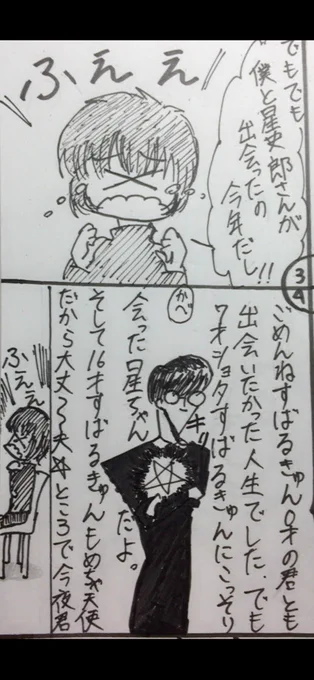 でもでも
僕と星史郎さんが
出会ったの
今年だし!!
ふええ
3/4
ごめんねすばるきゅん0才の君とも
出会いたかった人生でした.でも
7才ショタすばるきゅんにこっそり
キリ
かべ
会った星ちゃん
だよ。
そして16才すばるきゅんもめちゃ天使
だから大丈夫
ところで今夜君
ふええ